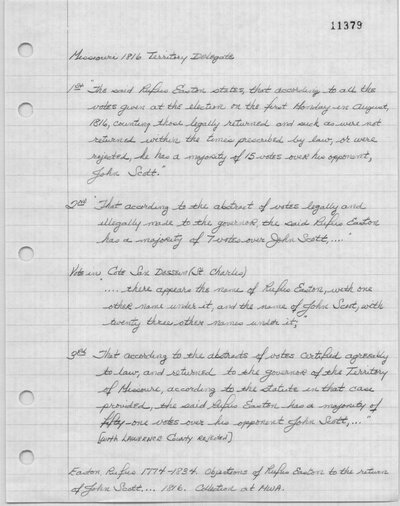 11379
Missouri 1816 Territory Delegate
1st "The said Rufus Easton states, that according to all the
votes given at the election on the first Monday in August,
1816, counting those legally returned and such as were not
returned within the times prescribed by law, or were
rejected, he has a majority of 15 votes over his opponent,
John Scott."
2nd "That according to the abstract of votes legally and
illegally made to the governor, the said Rufus Easton
has a majority of 7 votes over John Scott,....
Vote in "Cote San Dessein (St Charles)
"....there appears the name of Rufus Easton, with one
other name under it, and the name of John Scott, with
twenty three other names under it;"
3rd "That according to the abstracts of votes certified agreeably
to law, and returned to the governor of the Territory
of Missouri, according to the statute in that case
provided, the said Rufus Easton has a majority of
fifty-one votes over his opponent John Scott,...."
[with Lawrence County rejected]
Easton, Rufus 1774-1834. Objections of Rufus Easton to the return
of John Scott.... 1816. Collection at MWA.